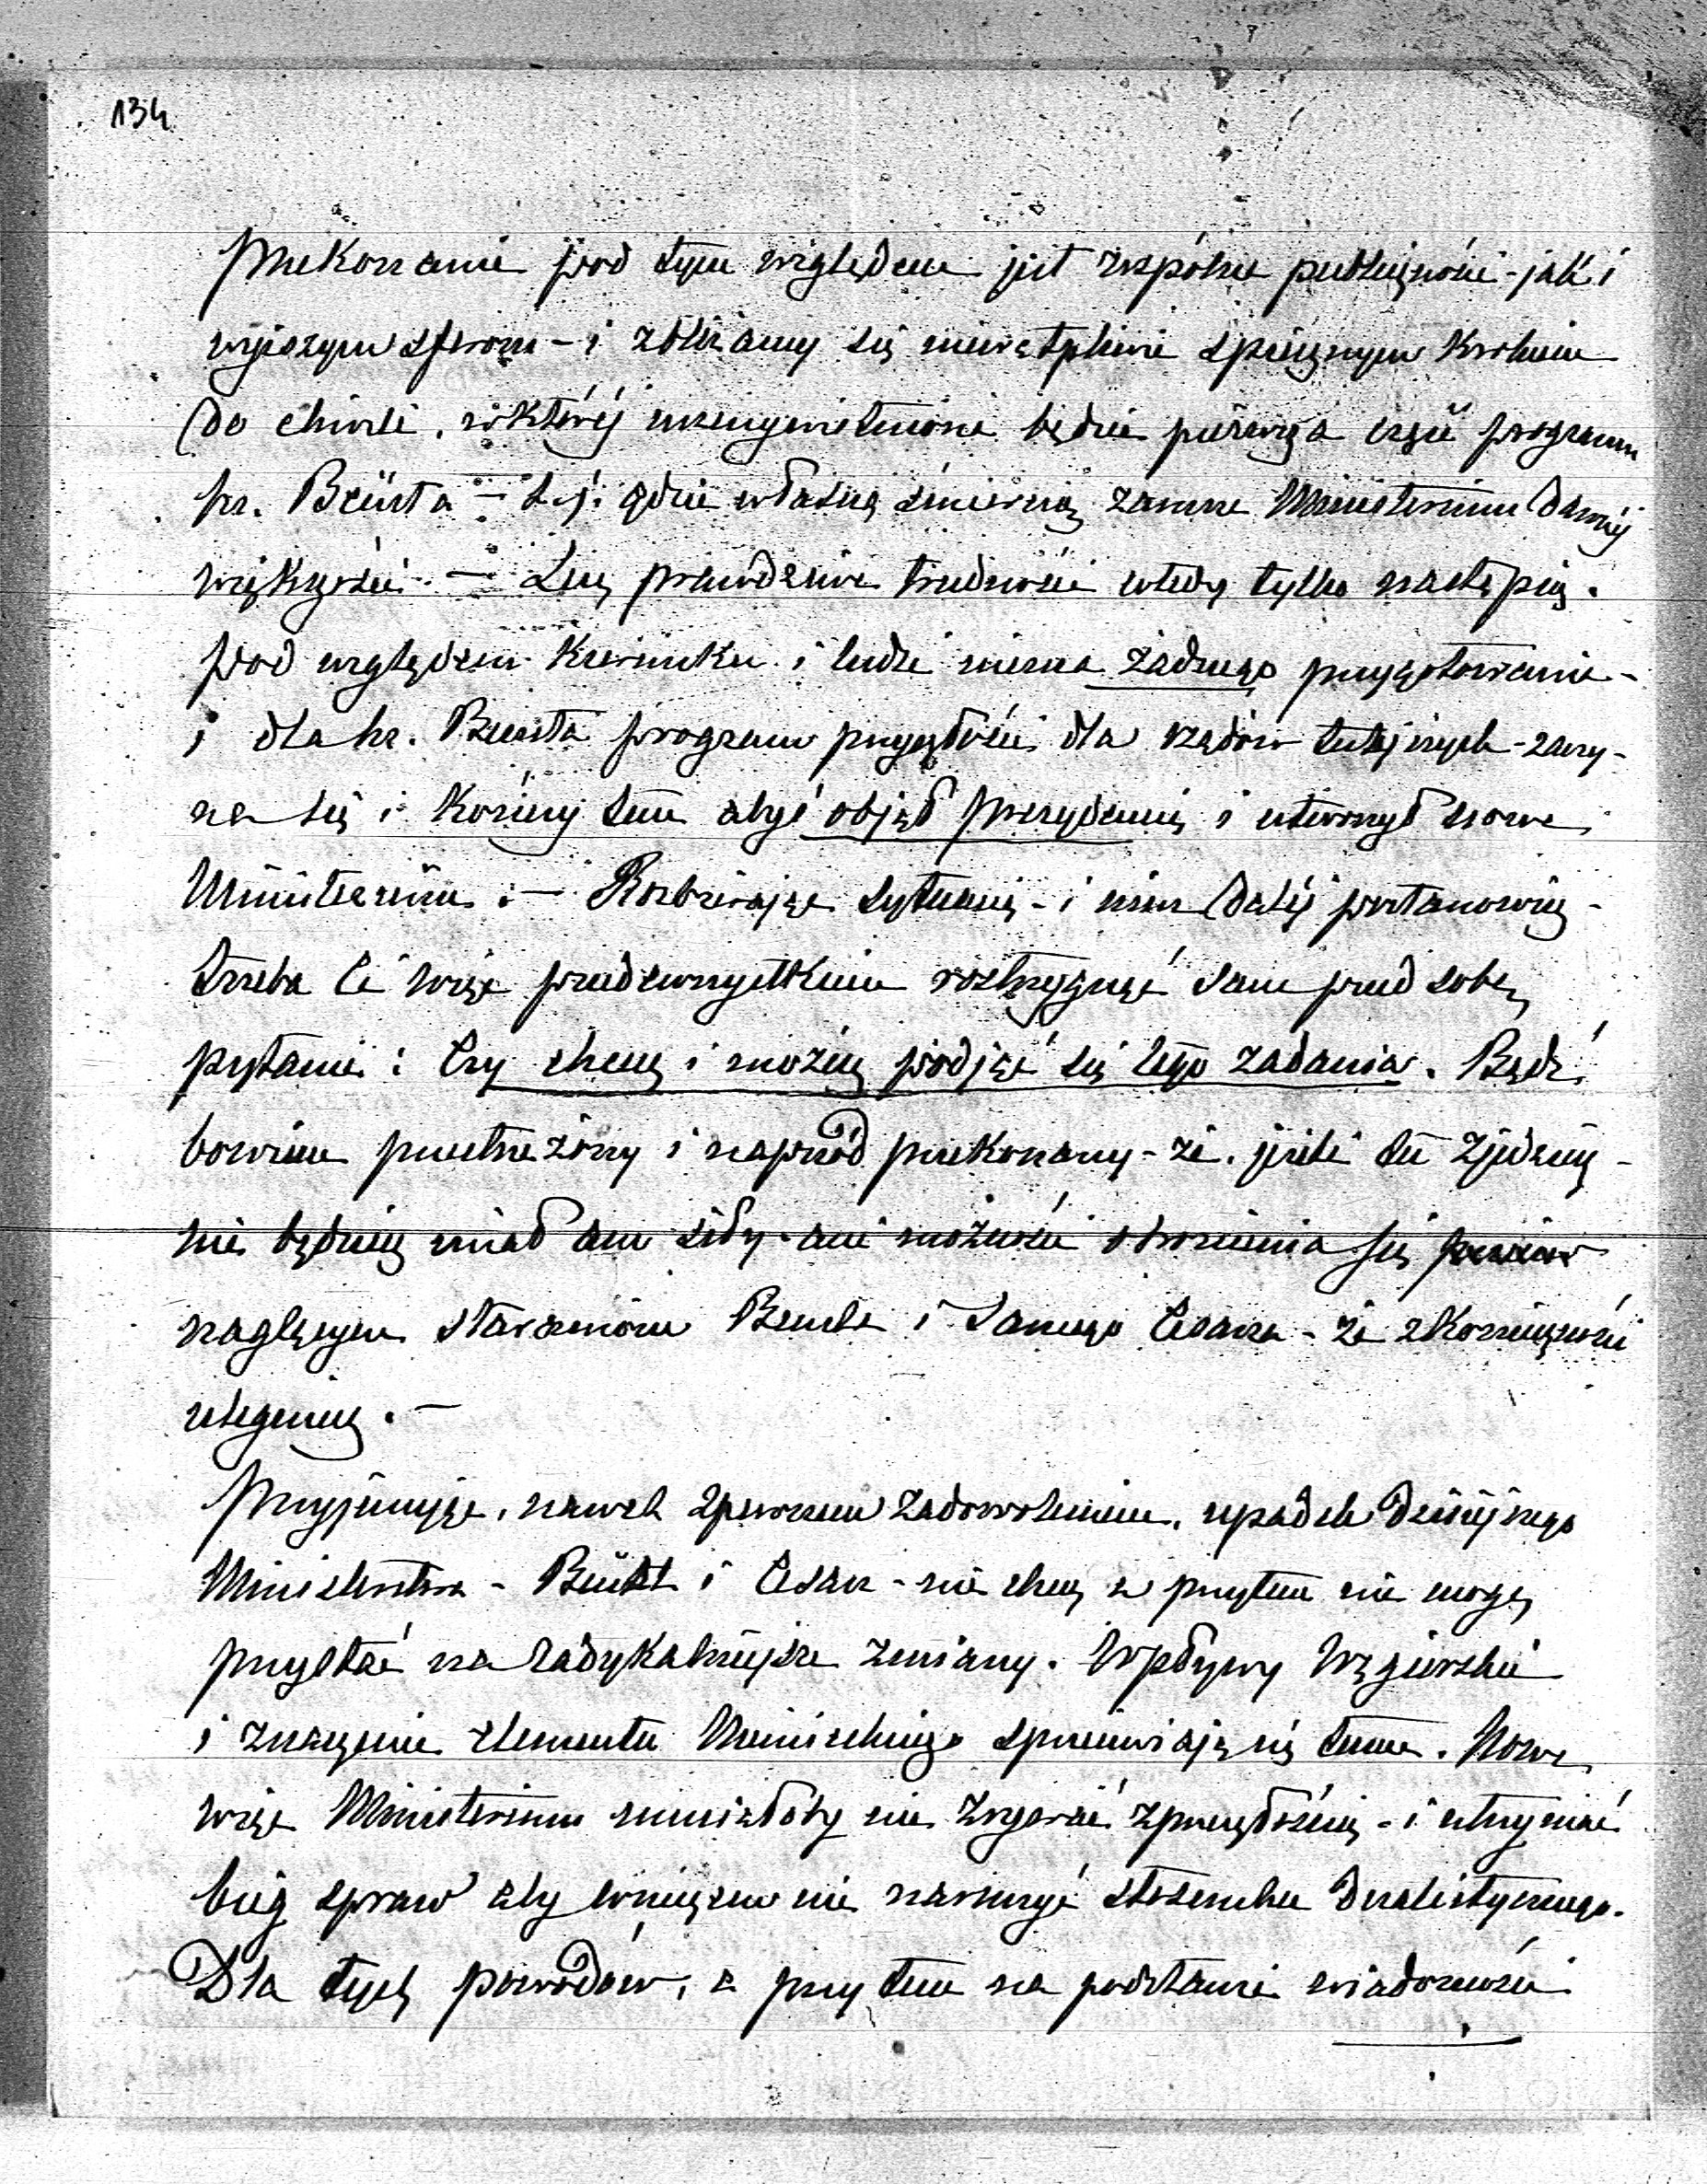 134
Przekonanie pod tym względem jest wspólne publiczności - jak i
wyższym sferom - i zbliżamy się niewątpliwie spiesznym krokiem
do chwili, w której urzeczywistniona będzie pierwsza część program
hr. Beusta - t. j. gdzie własną śmiercią zamrze Ministerium dawnéj
większości. - Lecz prawdziwe trudności wtedy tylko nastąpią.
Pod względem kierunku i ludzi niema żadnego przygotowania -
i dla hr. Beusta program przyszłości dla rządów tutejszych - zaczy-
na się i kończy tem abyś objął prezydencię i utworzył nowe
Ministerium. - Rozbierając sytuacię - i nim daléj postanowię -
trzeba Ci więc przedewszystkiem rozstrzygnąć sam przed sobą
pytanie: Czy chcesz i możesz podjąć się tego zadania. Bądź
bowiem przestrzeżony i naprzód przekonany - że, jeżeli tu zjedziesz -
nie będziesz miał ani siły - ani możności obronienia się
naglącym staraniom Beusta i Samego Cesarza - że z konieczności
ulegniesz. -
Przyjmując, nawet z pewnem zadowoleniem, upadek dzisiejszego
Ministerstwa - Beust i Cesarz - nie chcą a przytem nie mogą
przystać na radykalniejsze zmiany. Wpływy Węgierskie
i znaczenie elementu Niemieckiego sprzeciwiają się temu. Nowe
więc Ministerium musiałoby nie zrywać z przeszłością - i utrzymać
bieg spraw aby w niczem nie naruszyć stosunku dualistycznego.
Dla tych powodów, a przy tem na podstawie wiadomości